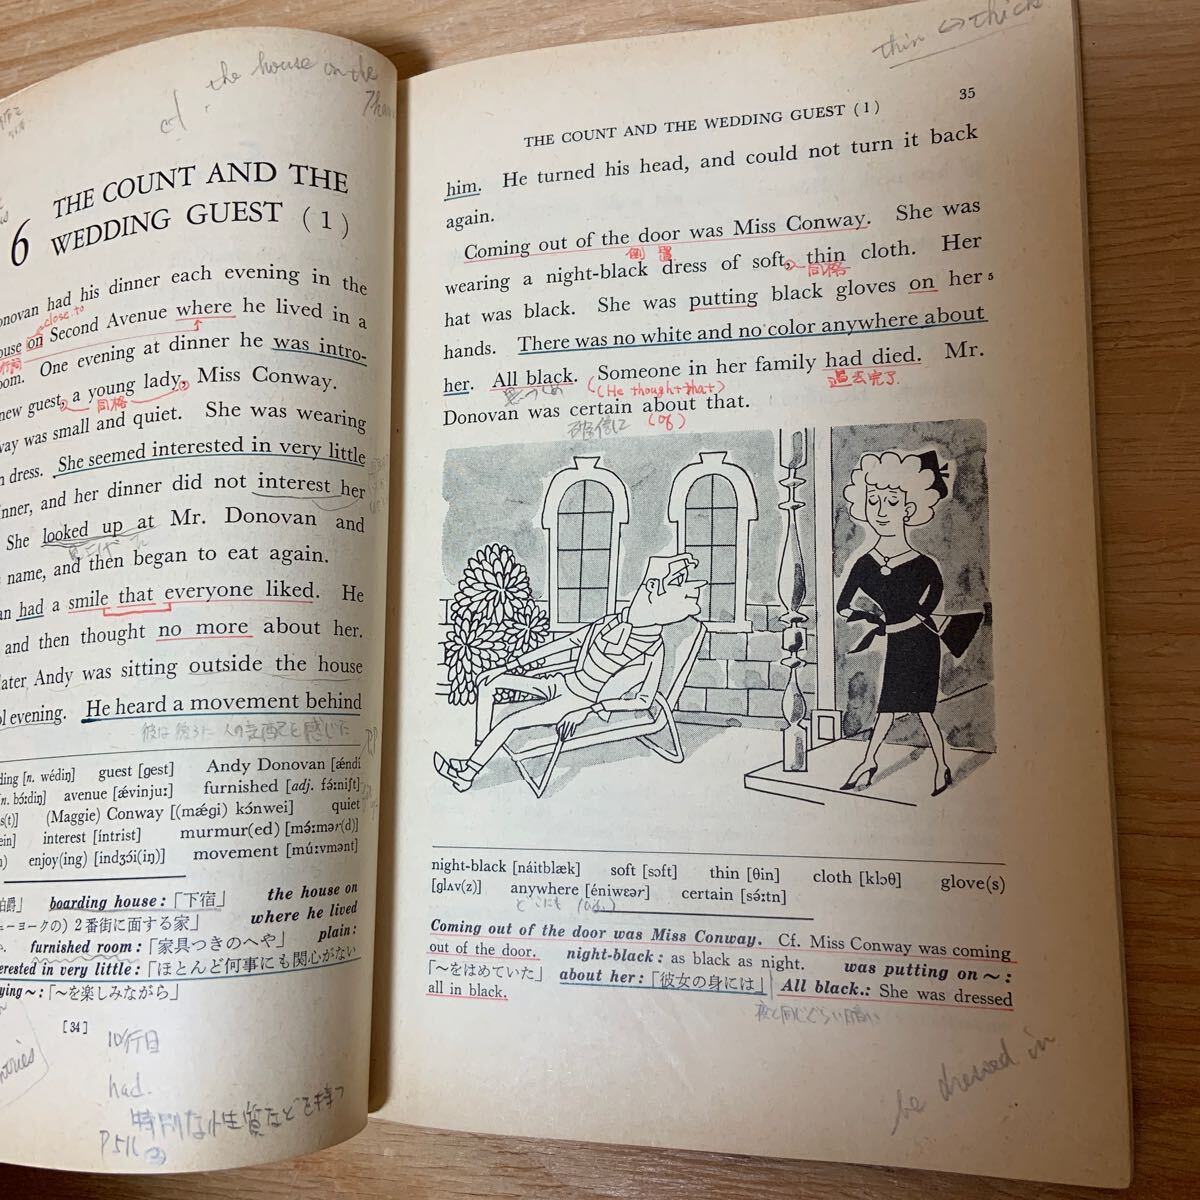 cf. the house on the
6 THE COUNT AND THE
WEDDING GUEST (1)
had his dinner each evening in the
close to
on Second Avenue where he lived in a
One evening at dinner he was intro-
new guest, a young lady, Miss Conway.
同格
way was small and quiet. She was wearing
dress. She seemed interested in very little
and her dinner did not interest her
She looked up at Mr. Donovan and
name, and then began to eat again.
had a smile that everyone liked. He
and then thought no more about her.
later Andy was sitting outside the house
evening. He heard a movement behind
[n. wédiŋ] guest [gest] Andy Donovan [ǽndi
avenue [ǽvinjuː] furnished [adj. fə́ːniʃt]
(Maggie) Conway [(mǽgi) kɔ́nwei] quiet
interest [íntrist] murmur(ed) [mə́ːmər(d)]
enjoy(ing) [indʒɔ́i(iŋ)] movement [múːvmənt]
boarding house:「下宿」 the house on
2番街に面する家」 where he lived
furnished room:「家具つきのへや」 plain:
in very little:「ほとんど何事にも関心がない
~:「~を楽しみながら」
[34]
10行目
had.
特別な性質などを持つ
P516
thin ↔ thick
THE COUNT AND THE WEDDING GUEST (1) 35
him. He turned his head, and could not turn it back
again.
Coming out of the door was Miss Conway. She was
倒置
wearing a night-black dress of soft, thin cloth. Her
同格
hat was black. She was putting black gloves on her 5
hands. There was no white and no color anywhere about
her. All black. Someone in her family had died. Mr.
(He thought that)
過去完了
Donovan was certain about that.
確信に (of)
night-black [náitblæk] soft [sɔft] thin [θin] cloth [klɔθ] glove(s)
[glʌv(z)] anywhere [éniwɛər] certain [sə́ːtn]
どこにも
Coming out of the door was Miss Conway. Cf. Miss Conway was coming
out of the door. night-black: as black as night. was putting on ~:
「~をはめていた」 about her:「彼女の身には」 All black.: She was dressed
all in black.
夜と同じぐらい暗い
be dressed in